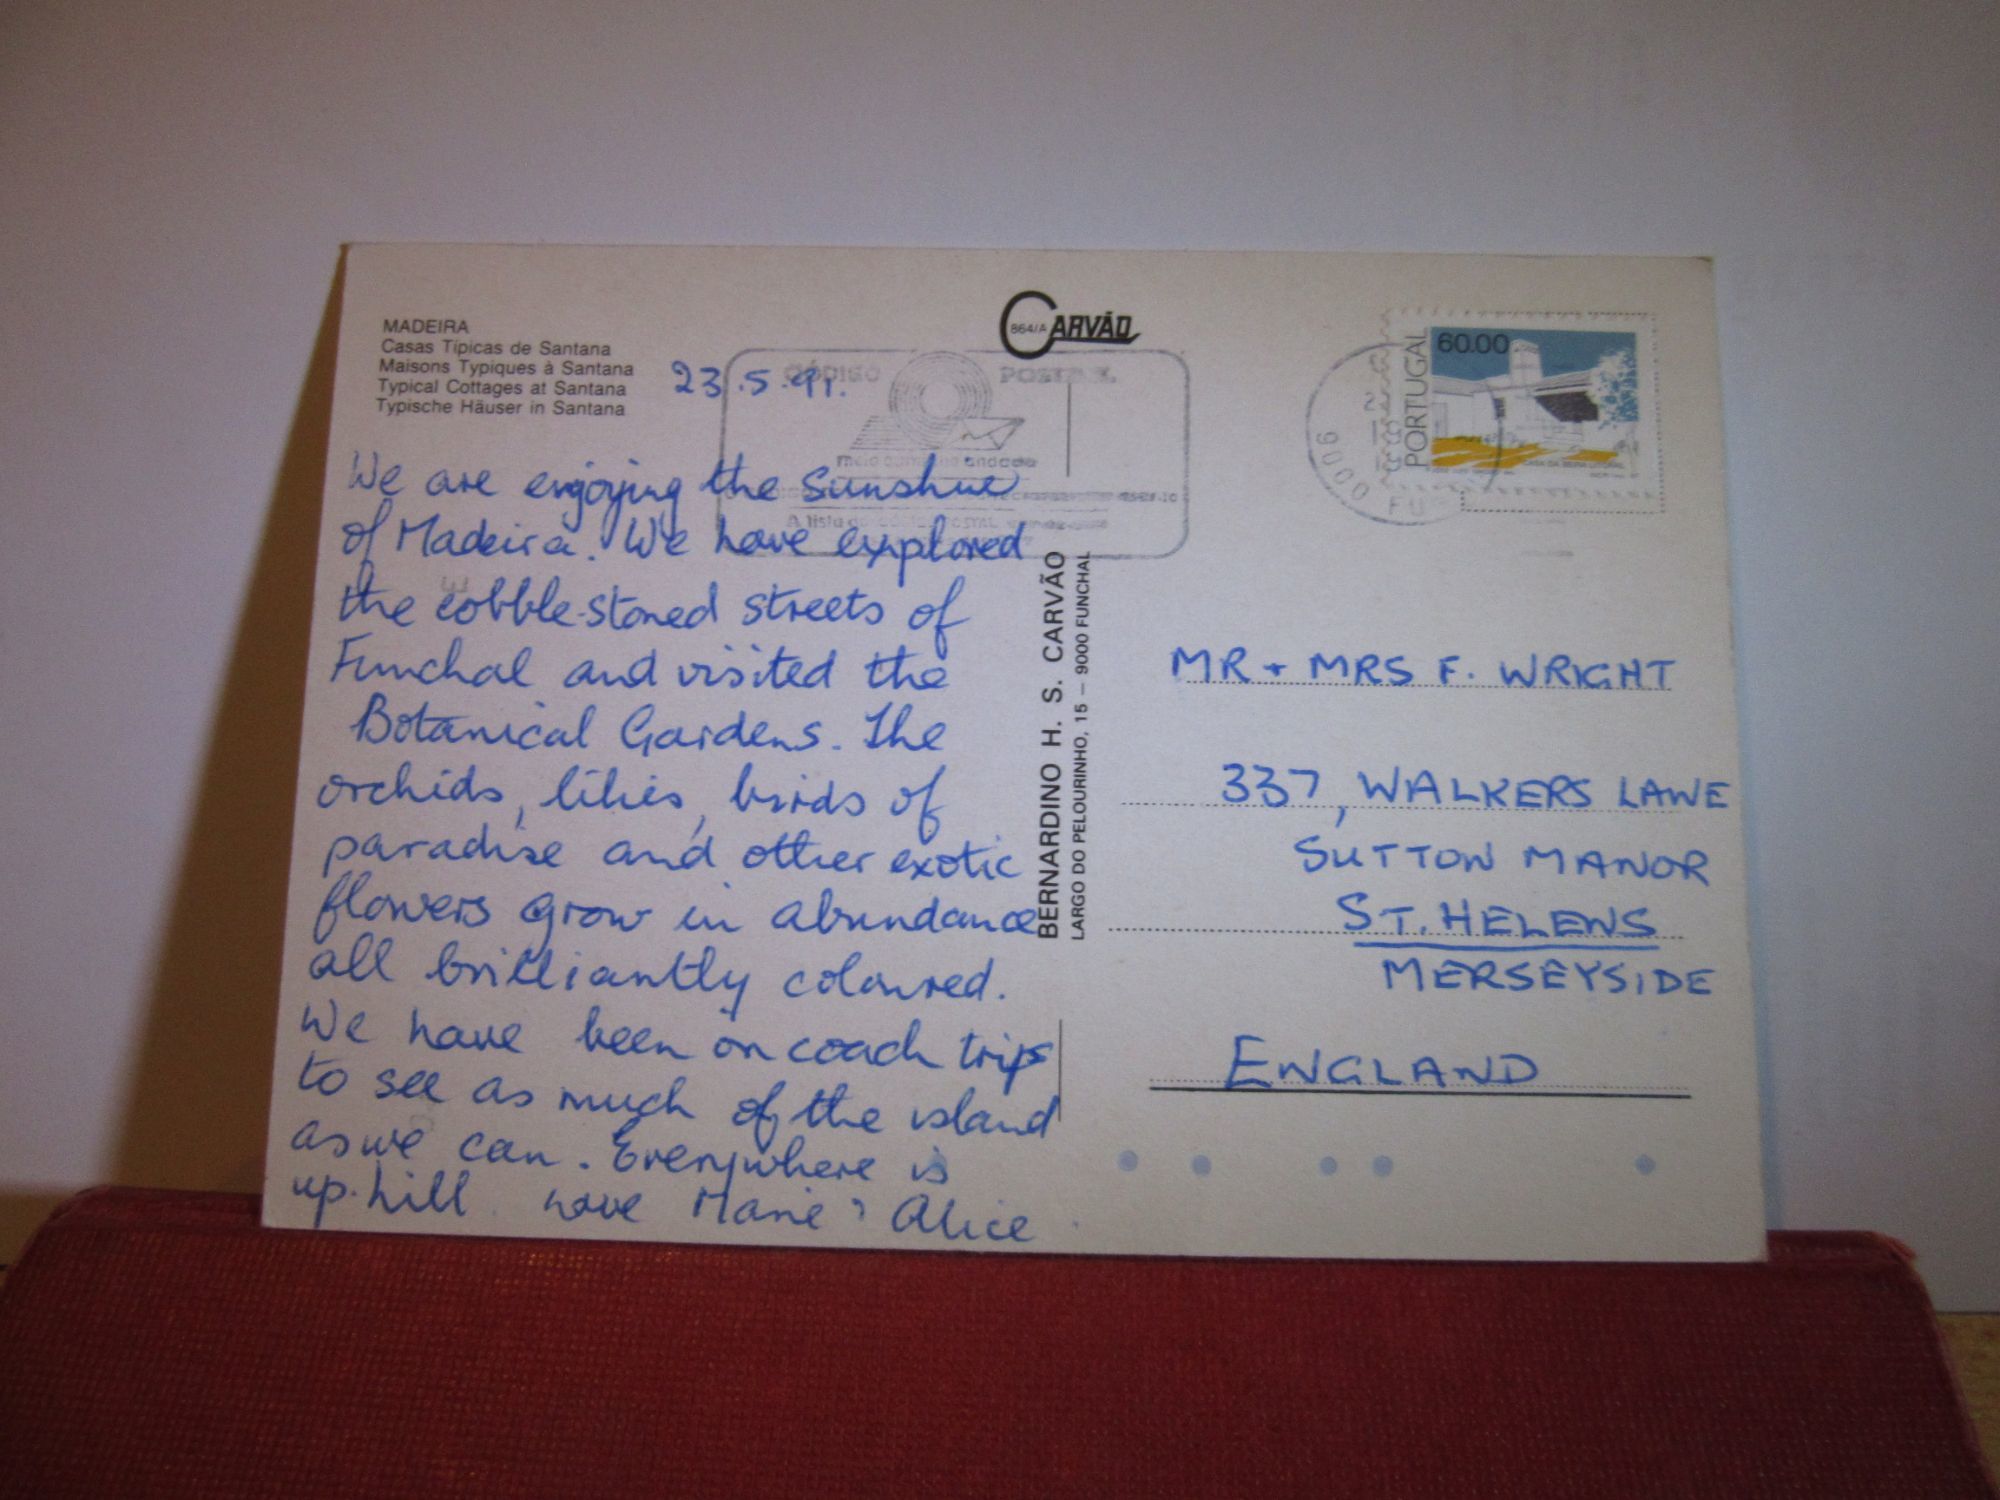 MADEIRA
Casas Típicas de Santana
Maisons Typiques à Santana
Typical Cottages at Santana
Typische Häuser in Santana
23.5.91.
864/A CARVÃO
CÓDIGO POSTAL
We are enjoying the sunshine
of Madeira. We have explored
the cobble-stoned streets of
Funchal and visited the
Botanical Gardens. The
orchids, lilies, birds of
paradise and other exotic
flowers grow in abundance
all brilliantly coloured.
We have been on coach trips
to see as much of the island
as we can. Everywhere is
up-hill. Love Marie & Alice
BERNARDINO H. S. CARVÃO
LARGO DO PELOURINHO, 15 – 9000 FUNCHAL
PORTUGAL
60.00
CASA DA BEIRA LITORAL
9000 FU
MR + MRS F. WRIGHT
337, WALKERS LANE
SUTTON MANOR
ST. HELENS
MERSEYSIDE
ENGLAND